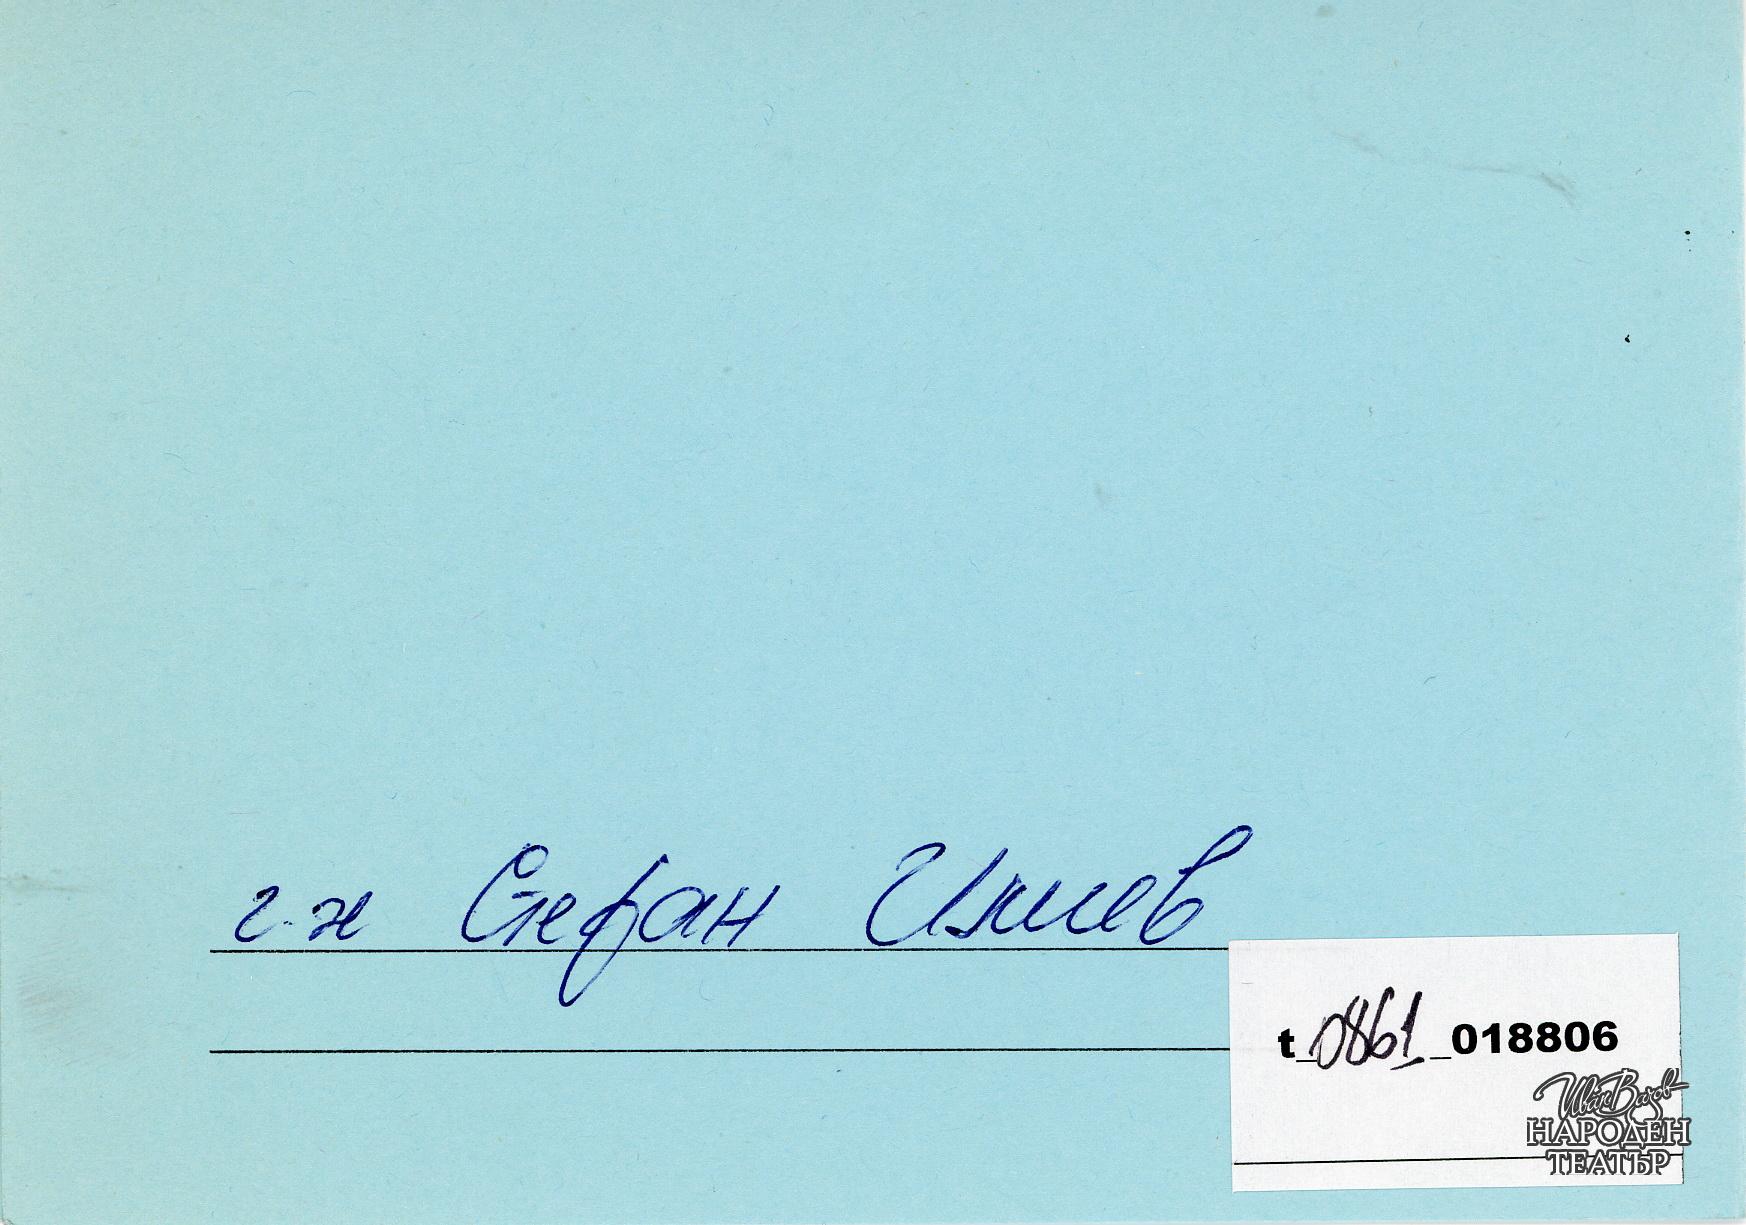 г-н Стефан Илиев
t_0861_018806
Иван Вазов
НАРОДЕН
ТЕАТЪР